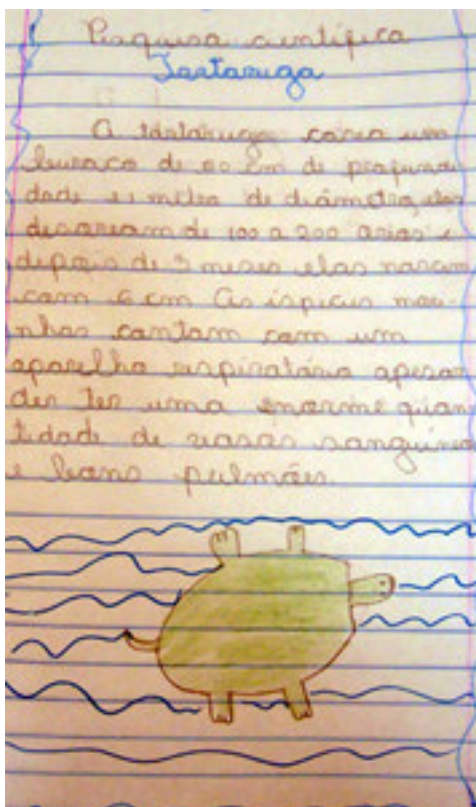 Pesquisa científica
Tartaruga
A tartaruga cava um
buraco de 60 cm de profundi
dade e 1 metro de diâmetro, elas
de 100 a 200
depois de 3 meses elas nascem
com 6 cm As mari
nhas contam com um
aparelho respiratório apesar
der ter uma enorme quan
tidade de vasos sanguíneos
e bons pulmões.